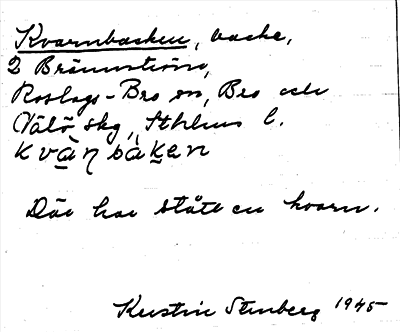 Kvarnbacken, backe,
2 Brännström,
Roslags-Bro sn, Bro och
Vätö skg, Sthlms l.
kvàɳbàken
Där har stått en kvarn.
Kerstin Stenberg 1945